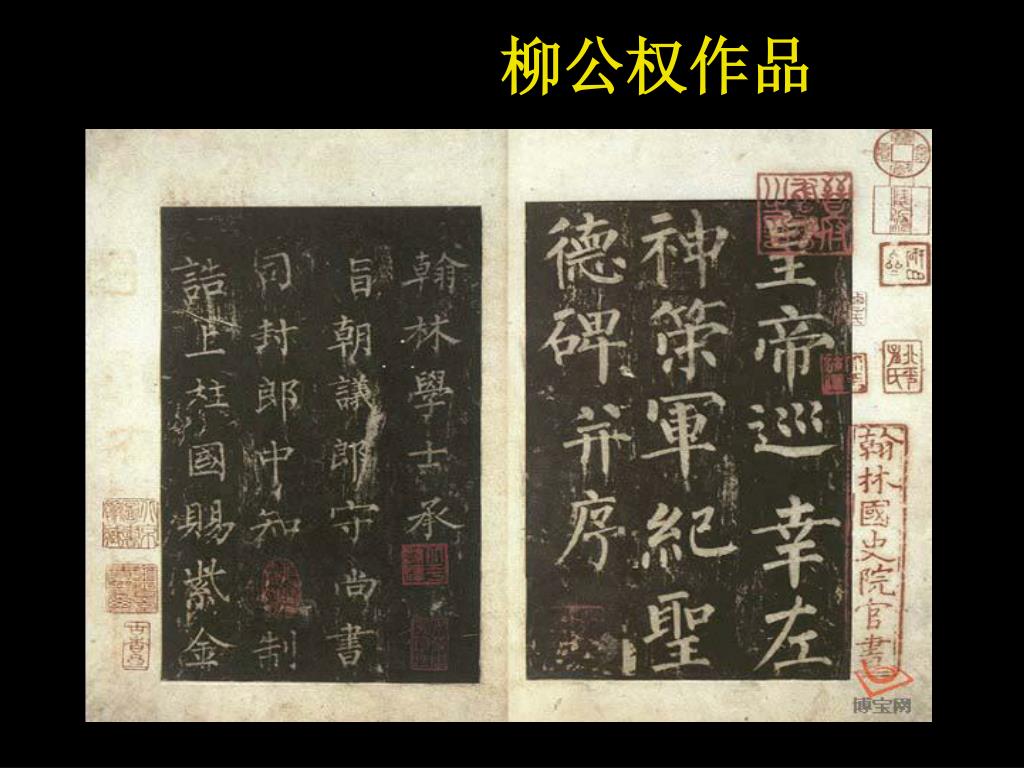 柳公权作品
皇帝巡幸左
神策軍紀聖
德碑并序
翰林學士承
旨朝議郎守尚書
司封郎中知制
誥上柱國賜紫金
翰林國史院官書
晉府
北平
博宝网